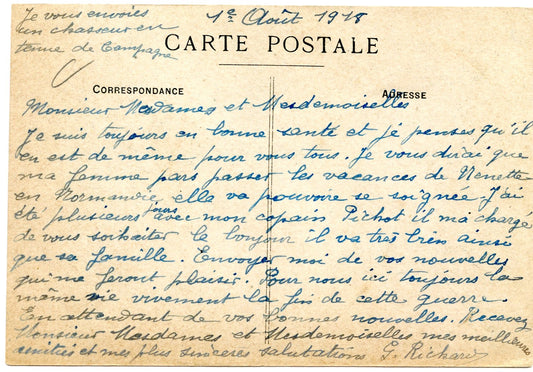 Je vous envoies
un chasseur en
tenue de Campagne
1e Août 1918
CARTE POSTALE
CORRESPONDANCE
ADRESSE
Monsieur Mesdames et Mesdemoiselles
Je suis toujours en bonne santé et je penses qu'il
en est de même pour vous tous. Je vous dirai que
ma femme pars passer les vacances de Nenette
en Normandie, elle va pouvoire se soignée J'ai
été plusieurs jours avec mon copain Pichot il m'a chargé
de vous souhaiter le bonjour il va très bien ainsi
que sa famille. Envoyer moi de vos nouvelles
qui me feront plaisir. Pour nous ici toujours la
même vie vivement la fin de cette guerre.
En attendant de vos bonnes nouvelles. Recevez
Monsieur Mesdames et Mesdemoiselles mes meilleures
amitiés et mes plus sincères salutations G. Richard